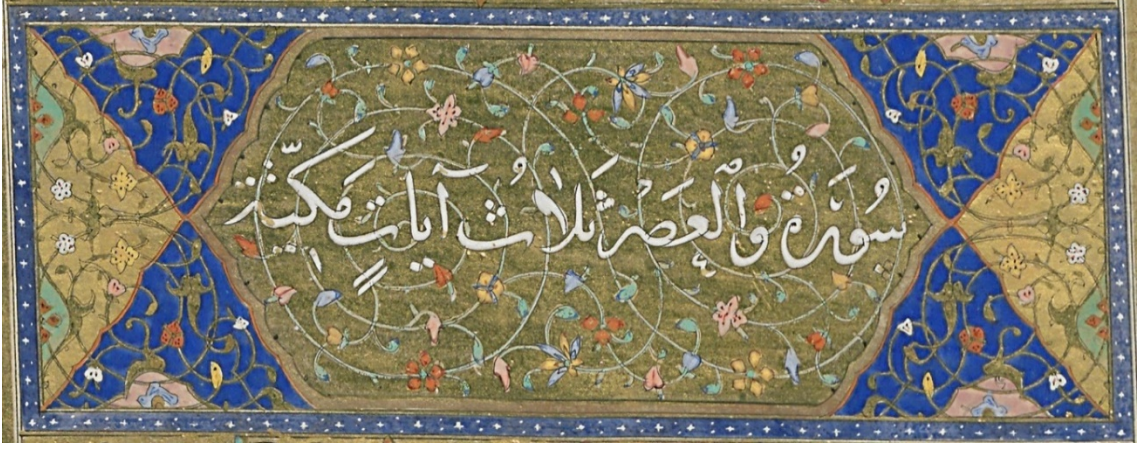 سُورَةُ وَالْعَصْرِ ثَلَاثُ آيَاتٍ مَكِّيَّة